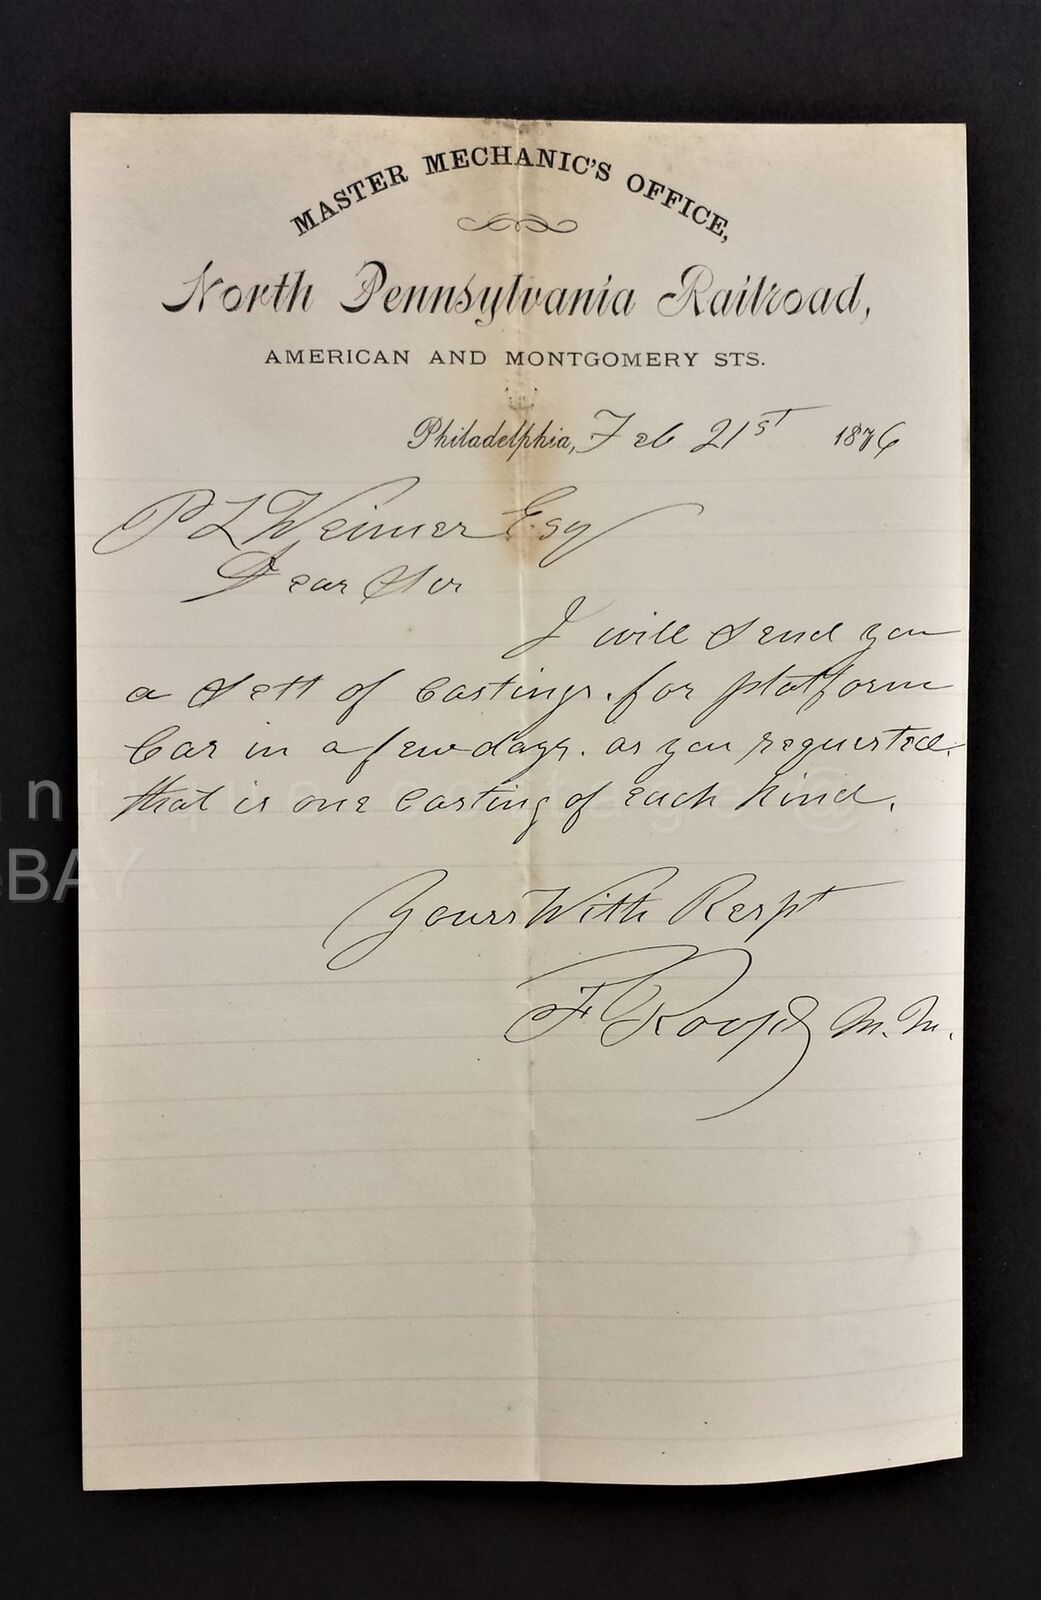 MASTER MECHANIC'S OFFICE,
North Pennsylvania Railroad,
AMERICAN AND MONTGOMERY STS.
Philadelphia, Feb 21st 1876
P L Weimer Esq
Dear Sir
I will send you
a sett of Castings. for platform
Car in a few days. as you requested.
that is one Casting of each kind.
Yours With Respt
F Roop M.M.
n @
BAY